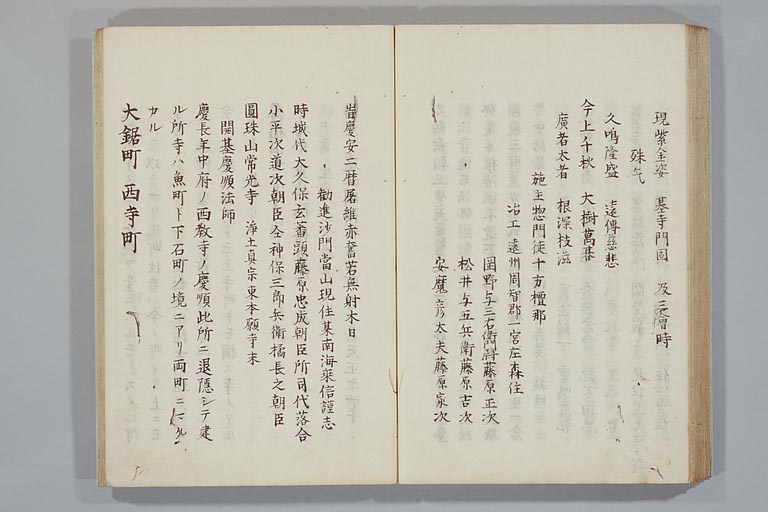 現紫金姿 基寺門固 及三會時
殊気
久鳴隆盛 遠傳慈悲
今上千秋 大樹萬春
廣者太者 根深枝滋
施主惣門徒十方檀那
冶工遠州周智郡一宮庄森住
岡野与三右衛門尉藤原正次
松井与五兵衛藤原吉次
安麾彦太夫藤原家次
旹慶安二暦屠維赤奮若無射本日
勧進沙門當山現住某南海乗信謹志
時城代大久保玄蕃頭藤原忠成朝臣所司代落合
小平次道次朝臣仝神保三郎兵衛橘長之朝臣
圓珠山常光寺 浄土真宗東本願寺末
開基慶順法師
慶長年中府ノ西教寺ノ慶順此所ニ退隠シテ建
ル所寺ハ魚町ト下石町ノ境ニアリ両町ニマタ
カル
大鋸町 西寺町